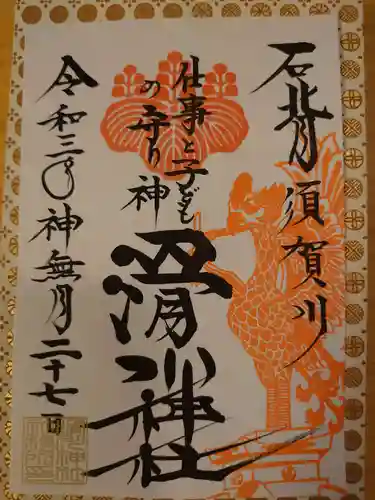 石背 須賀川
仕事と子どもの守り神
滑川神社
令和三年神無月二十七日